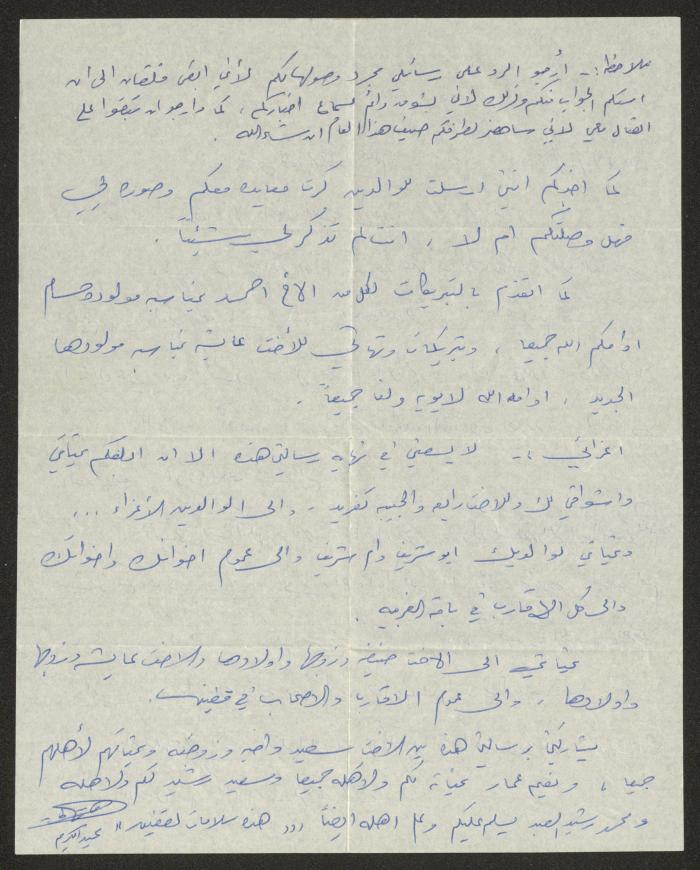 ملاحظة :- أرجو الرد على رسائلي بمجرد وصولها لكم لأني ابقى قلقان الى ان
استلم الجواب منكم وذلك لاني بشوق دائم لسماع اخباركم ، كما وارجو ان تبقوا على
اتصال معي لاني سأحضر لطرفكم صيف هذا العام ان شاء الله .
كما اخبركم انني ارسلت للوالدين كرت معايده معكم وصوره لي
فهل وصلتكم ام لا ، انت لم تذكر لي شيئاً .
كما اتقدم بالتبريكات لكل من الأخ احمد بمناسبة مولوده حسام
ادامكم الله جميعا ، وتبريكات وتهاني للأخت عايشه بمناسبة مولودها
الجديد ، ادامه الله لأبويه ولنا جميعاً .
اعزائي :- لا يسعني في نهاية رسالتي هذه الا ان ابلغكم تحياتي
واشواقي لك وللاخت رابعه والحبيبه تغريد ، والى الوالدين الأعزاء ...
وتحياتي لوالديك ابو شريف وام شريف والى عموم اخوانك واخواتك
والى كل الاقارب في باقة الغربيه .
تحياتي الى الاخت وزوجها واولادها والاخت عايشه وزوجها
واولادها ، والى عموم الاقارب والاصحاب في
يشاركني برسالتي هذه سعيد واخيه وزوجته وتحياتهم لأهلهم
جميعا ، عمار تحياته لكم ولأهله جميعا وسعيد رشيد لكم ولأهله
ومحمد رشيد العبد يسلم عليكم وعلى اهله ايضاً ,,, هذه سلامات
عبد الكريم